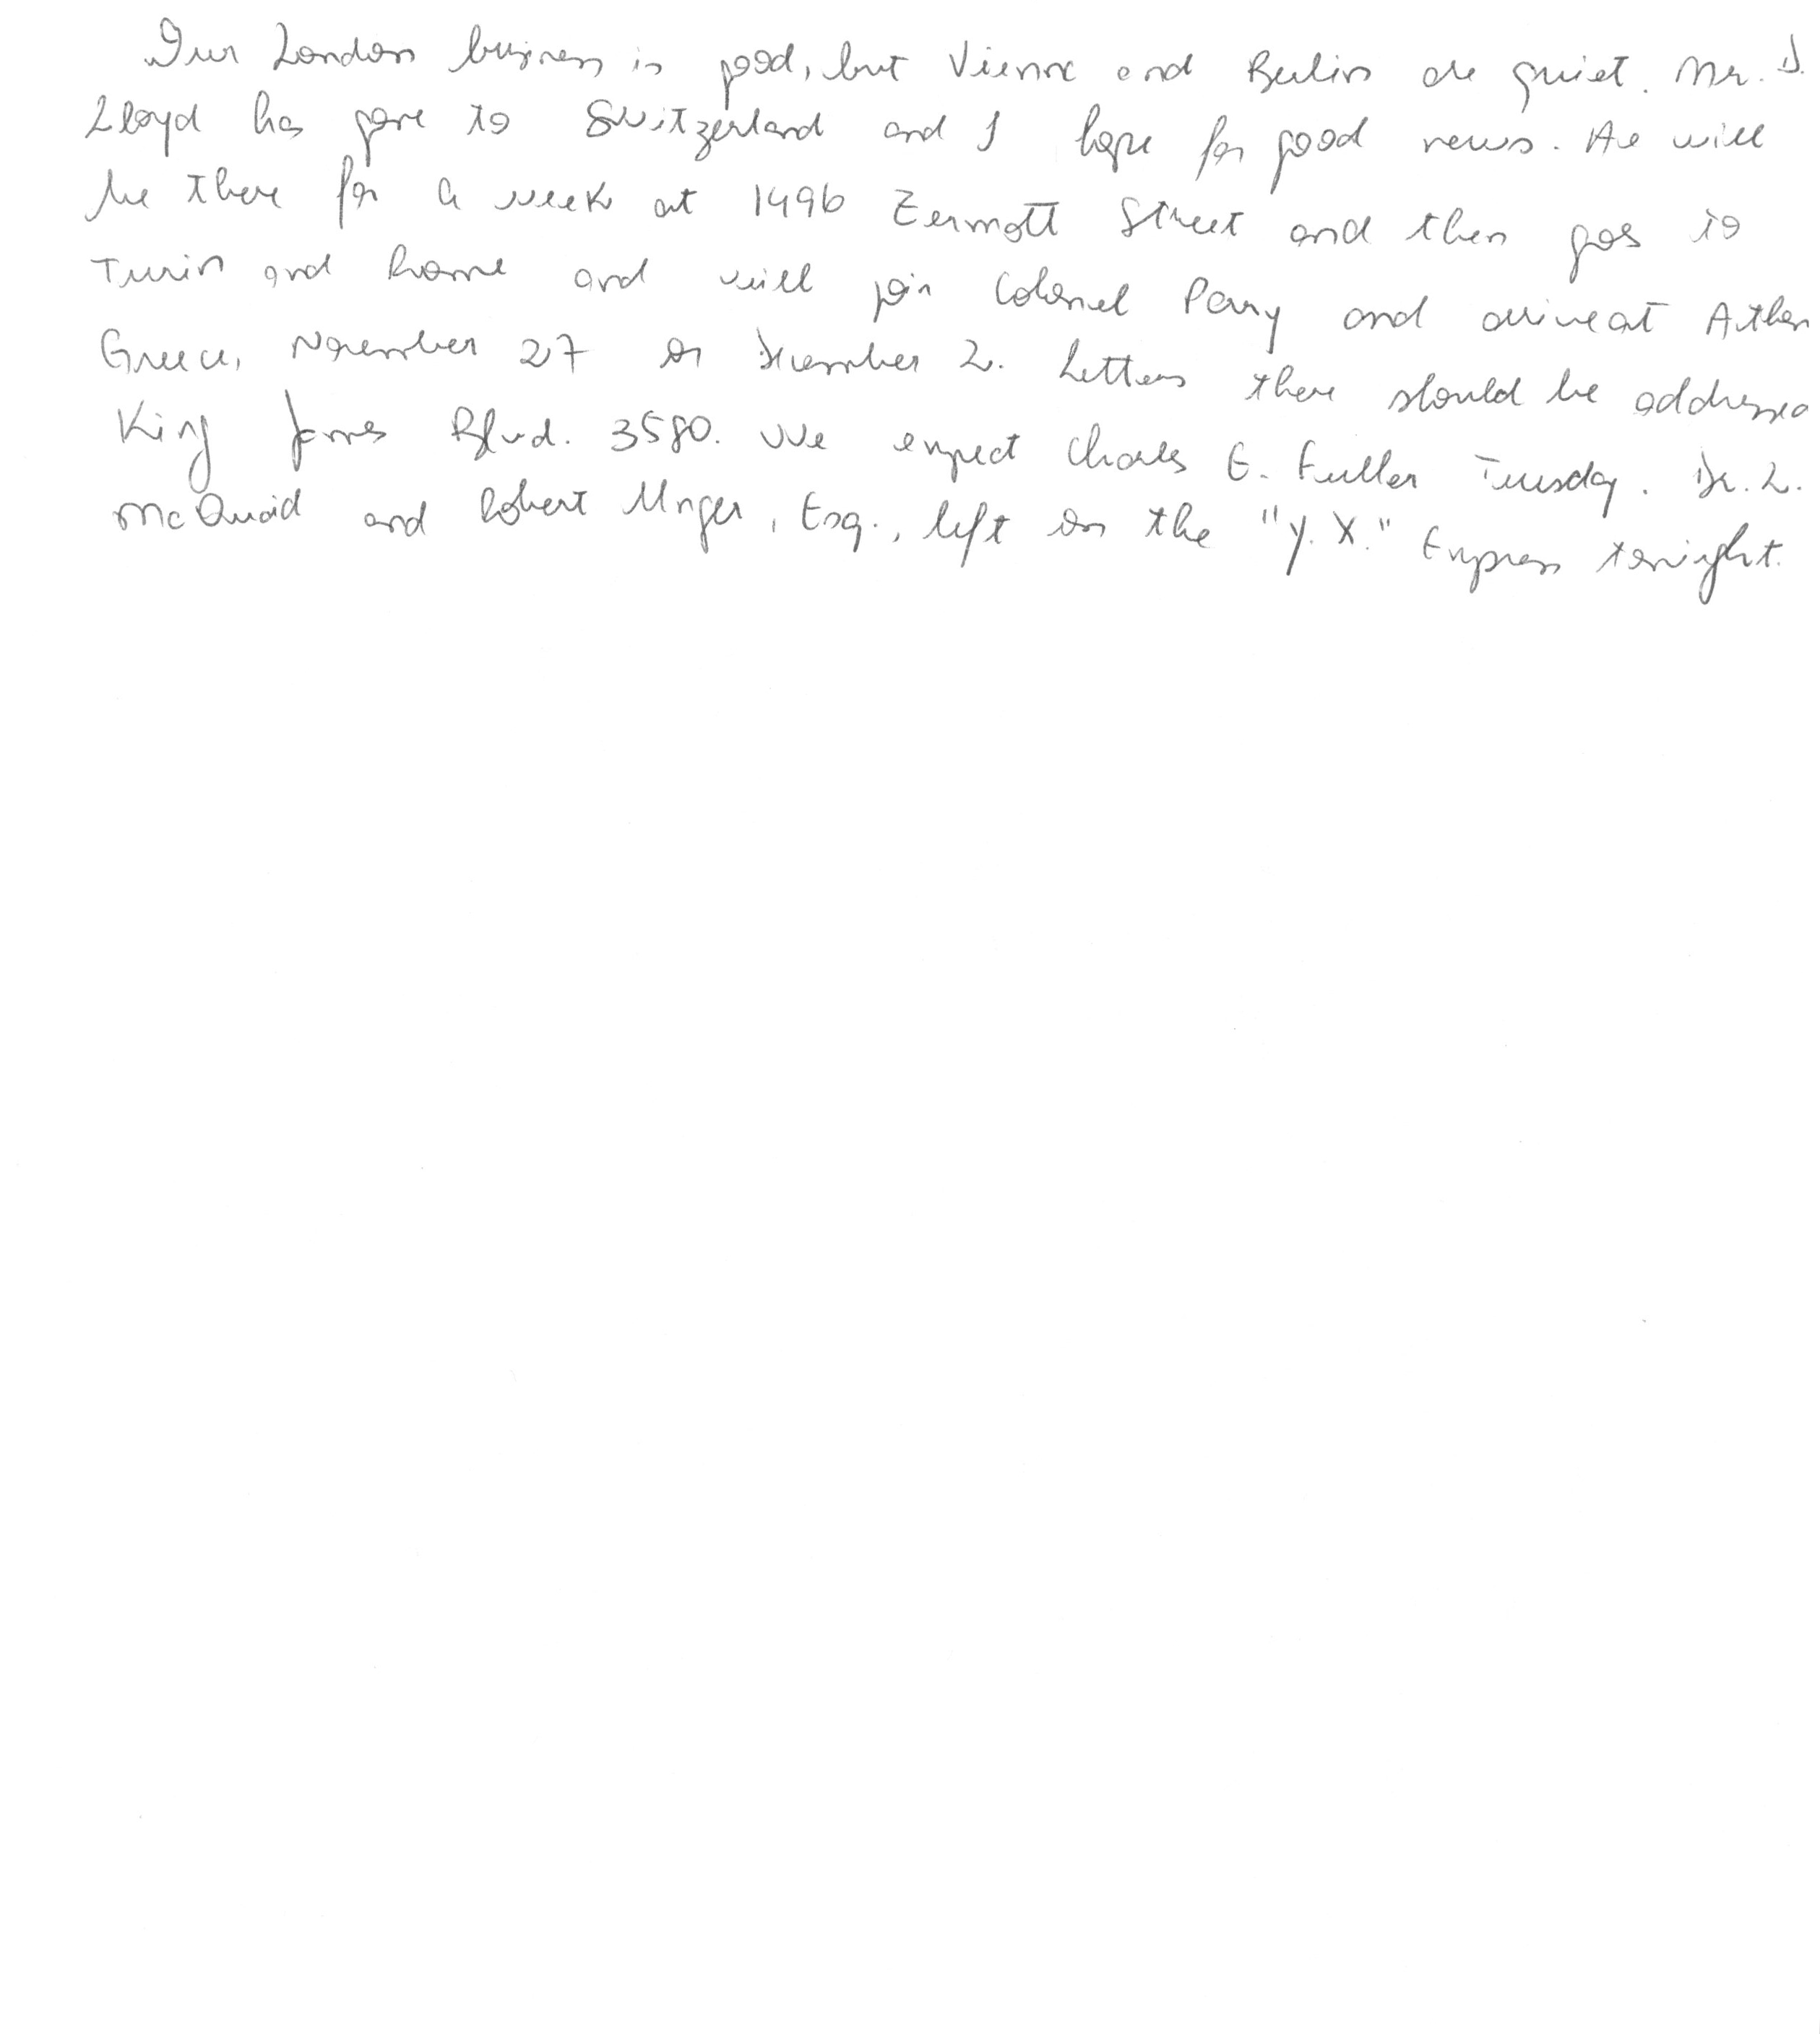 Our London business is good, but Vienna and Berlin are quiet. Mr. D.
Lloyd has gone to Switzerland and I hope for good news. He will
be there for a week at 1496 Zermott Street and then goes to
Turin and Rome and will join Colonel Parry and arrive at Athen
Greece, November 27 or December 2. Letters there should be addressed
King James Blvd. 3580. We expect Charles E. Fuller Tuesday. Dr. L.
McQuaid and Robert Unger, Esq., left on the "Y.X." Express tonight.